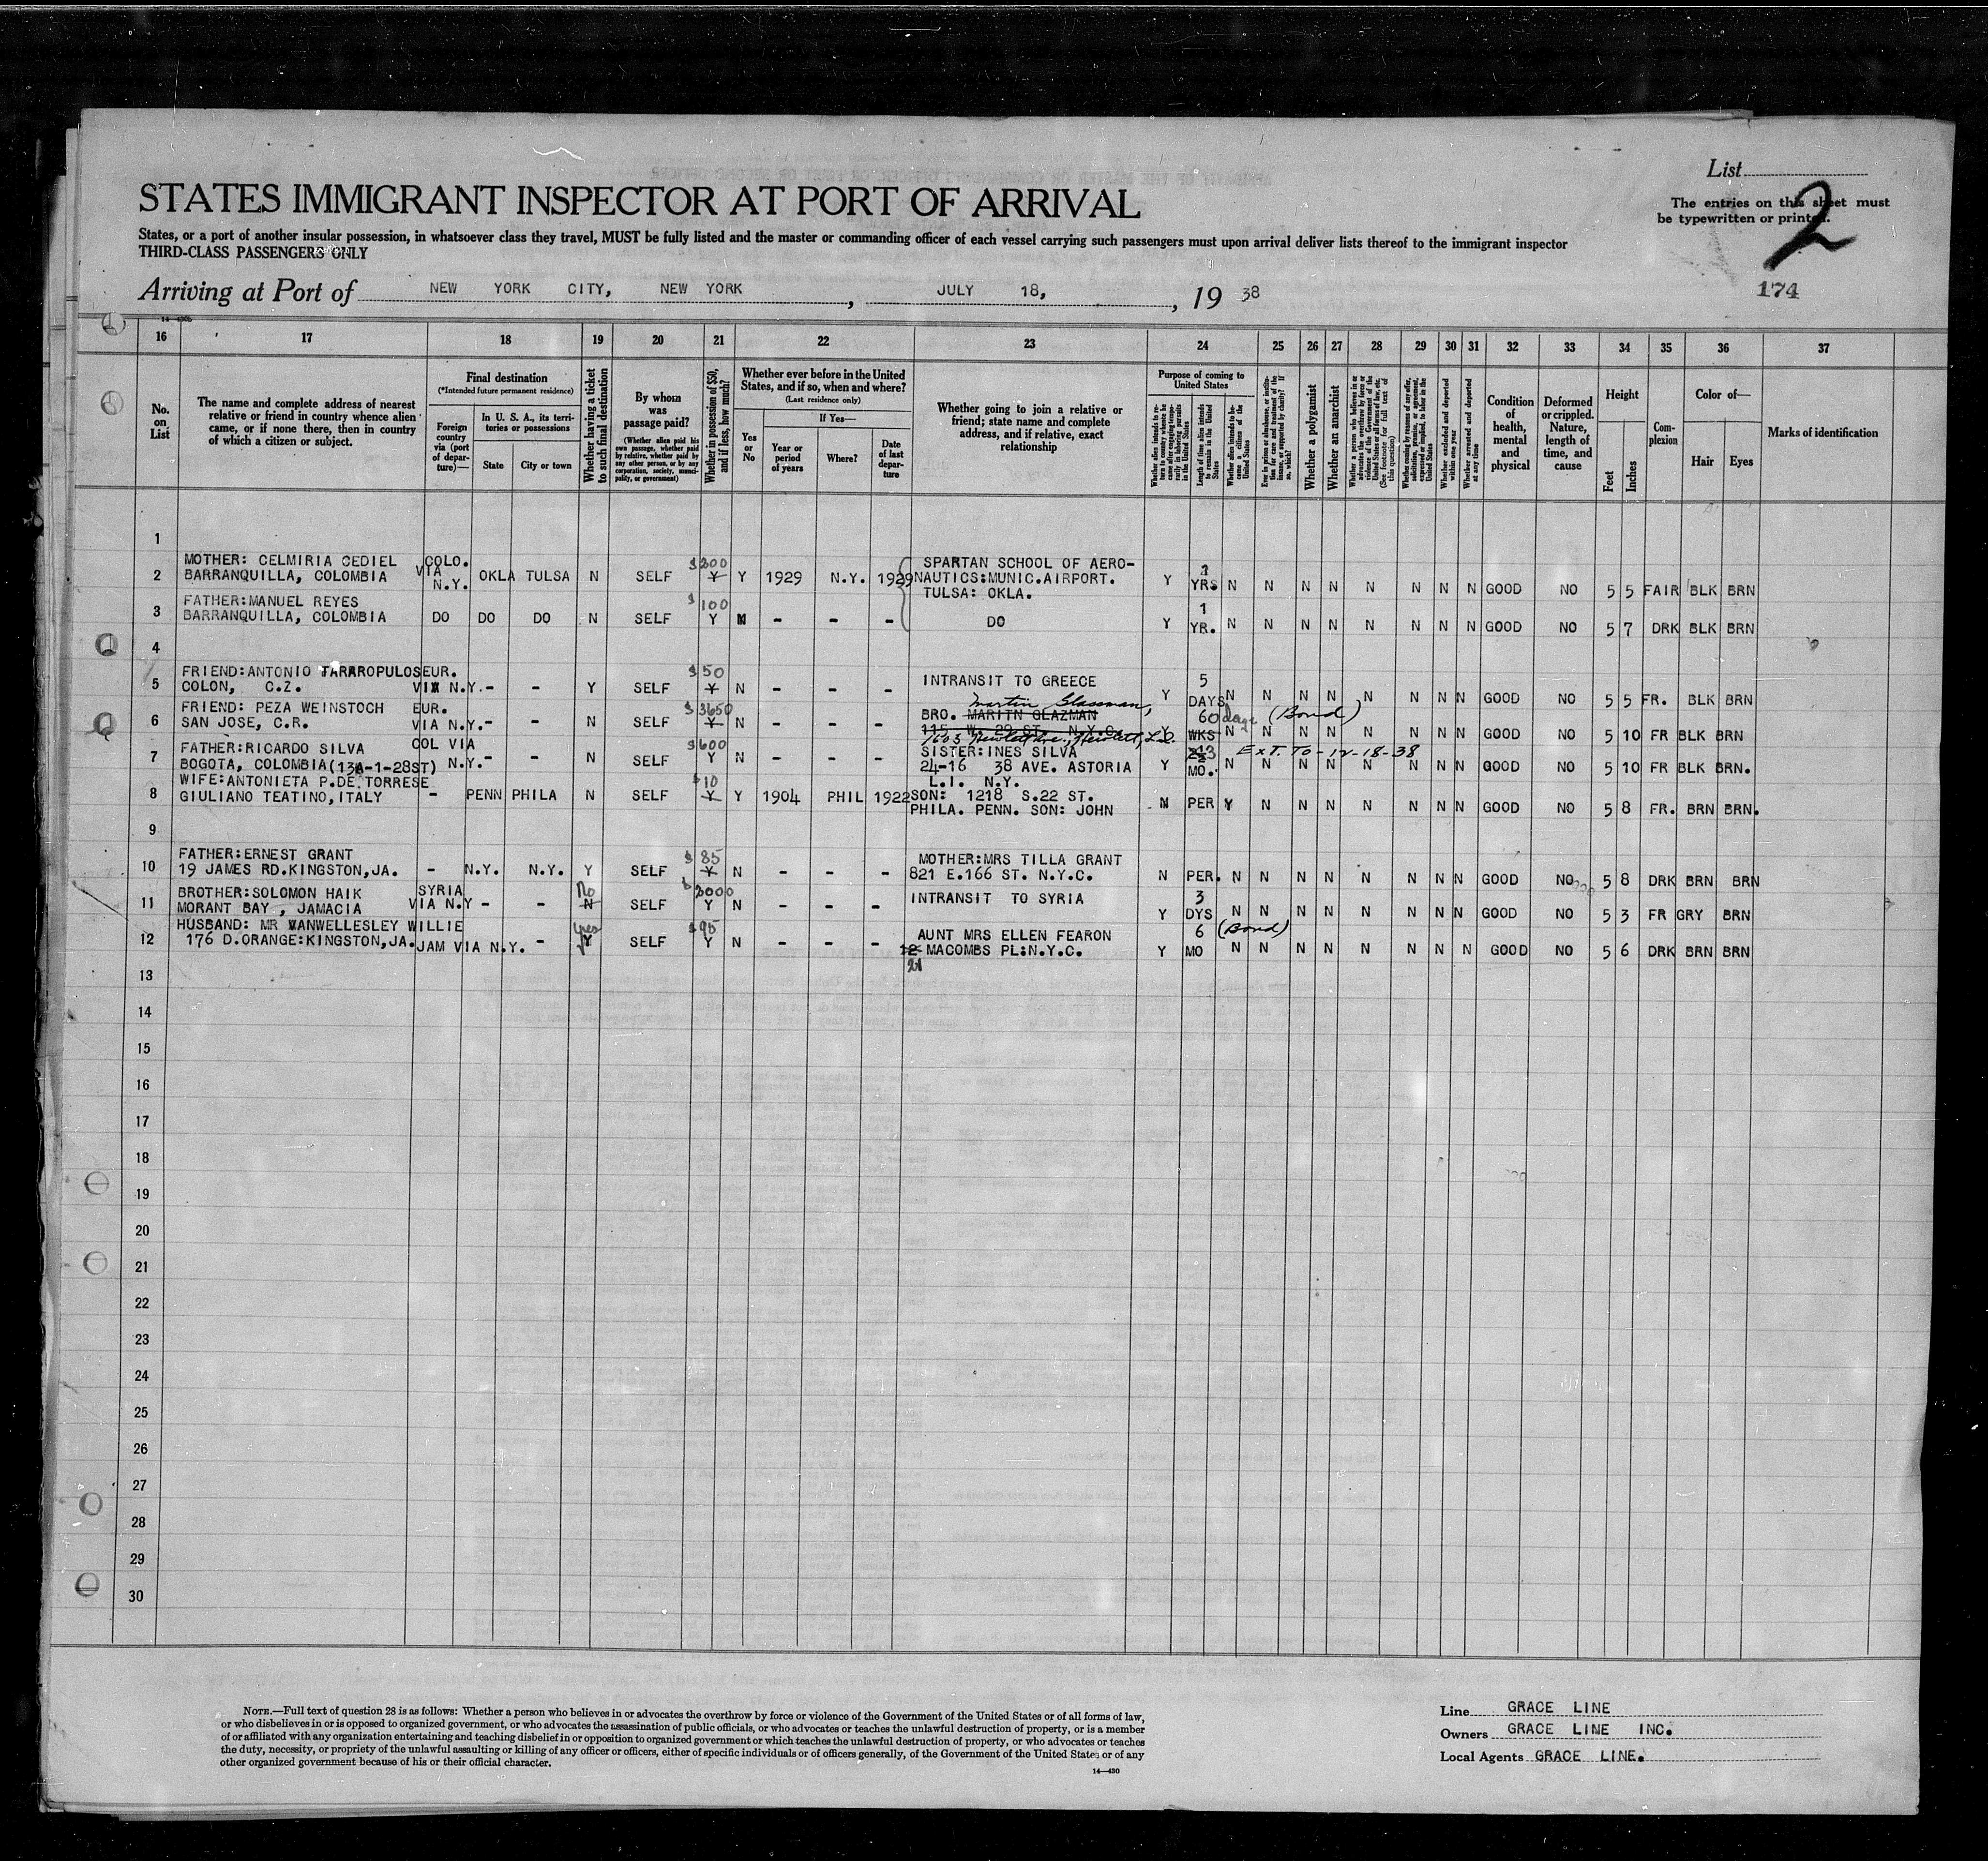 List
STATES IMMIGRANT INSPECTOR AT PORT OF ARRIVAL
The entries on this sheet must
be typewritten or printed.
2
States, or a port of another insular possession, in whatsoever class they travel, MUST be fully listed and the master or commanding officer of each vessel carrying such passengers must upon arrival deliver lists thereof to the immigrant inspector
THIRD-CLASS PASSENGERS ONLY
Arriving at Port of NEW YORK CITY, NEW YORK, JULY 18, 19 38
174
16 17 18 19 20 21 22 23 24 25 26 27 28 29 30 31 32 33 34 35 36 37
No. on List
The name and complete address of nearest relative or friend in country whence alien came, or if none there, then in country of which a citizen or subject.
Final destination
(*Intended future permanent residence)
Foreign country via (port of departure)—
In U. S. A., its territories or possessions
State
City or town
Whether having a ticket to such final destination
By whom was passage paid?
(Whether alien paid his own passage, whether paid by relative, whether paid by any other person, or by any corporation, society, municipality, or government)
Whether in possession of $50, and if less, how much?
Whether ever before in the United States, and if so, when and where?
(Last residence only)
Yes or No
If Yes—
Year or period of years
Where?
Date of last departure
Whether going to join a relative or friend; state name and complete address, and if relative, exact relationship
Purpose of coming to United States
Whether alien intends to return to country whence he came after engaging temporarily in laboring pursuits in the United States
Length of time alien intends to remain in the United States
Whether alien intends to become a citizen of the United States
Ever in prison or almshouse, or institution for care and treatment of the insane, or supported by charity? If so, which?
Whether a polygamist
Whether an anarchist
Whether a person who believes in or advocates the overthrow by force or violence of the Government of the United States or all forms of law, etc. (See footnote for full text of this question)
Whether coming by reasons of any offer, solicitation, promise, or agreement, expressed or implied, to labor in the United States
Whether excluded and deported within one year
Whether arrested and deported at any time
Condition of health, mental and physical
Deformed or crippled. Nature, length of time, and cause
Height
Feet
Inches
Complexion
Color of—
Hair
Eyes
Marks of identification
1
2 MOTHER: CELMIRIA CEDIEL BARRANQUILLA, COLOMBIA COLO. VIA N.Y. OKLA TULSA N SELF $200 Y Y 1929 N.Y. 1929 SPARTAN SCHOOL OF AERO-NAUTICS:MUNIC.AIRPORT. TULSA: OKLA. Y YRS N N N N N N N N GOOD NO 5 5 FAIR BLK BRN
3 FATHER:MANUEL REYES BARRANQUILLA, COLOMBIA DO DO DO N SELF $100 Y N - - - DO Y 1 YR. N N N N N N N N GOOD NO 5 7 DRK BLK BRN
4
5 FRIEND:ANTONIO COLON, C.Z. EUR. VIA N.Y. - - Y SELF $50 Y N - - - INTRANSIT TO GREECE Y 5 DAYS N N N N N N N N GOOD NO 5 5 FR. BLK BRN
6 FRIEND: PEZA WEINSTOCH SAN JOSE, C.R. EUR. VIA N.Y. - - N SELF $3650 Y N - - - BRO. MARITN GLAZMAN Martin Glassman, 115 W. 29 ST. N.Y.C. 1603 Hewlett Ave., Hewlett, L.I. 60 days (Bond) WKS N N N N N N N N GOOD NO 5 10 FR BLK BRN
7 FATHER:RICARDO SILVA BOGOTA, COLOMBIA(13A-1-28ST) COL VIA N.Y. - - N SELF $600 Y N - - - SISTER:INES SILVA 24-16 38 AVE. ASTORIA L.I. N.Y. Y 3 MO. EXT. TO - 12-18-38 N N N N N N N N GOOD NO 5 10 FR BLK BRN.
8 WIFE:ANTONIETA P.DE TORRESE GIULIANO TEATINO,ITALY - PENN PHILA N SELF $10 Y Y 1904 PHIL 1922 SON: 1218 S.22 ST. PHILA. PENN. SON: JOHN N PER Y N N N N N N N GOOD NO 5 8 FR. BRN BRN.
9
10 FATHER:ERNEST GRANT 19 JAMES RD.KINGSTON,JA. - N.Y. N.Y. Y SELF $85 Y N - - - MOTHER:MRS TILLA GRANT 821 E.166 ST. N.Y.C. N PER. N N N N N N N N GOOD NO 5 8 DRK BRN BRN
11 BROTHER:SOLOMON HAIK MORANT BAY , JAMACIA SYRIA VIA N.Y - - No N SELF $2000 Y N - - - INTRANSIT TO SYRIA Y 3 DYS N N N N N N N N GOOD NO 5 3 FR GRY BRN
12 HUSBAND: MR VANWELLESLEY WILLIE 176 D.ORANGE:KINGSTON,JA. JAM VIA N.Y. - yes Y SELF $95 Y N - - - AUNT MRS ELLEN FEARON 12 21 MACOMBS PL:N.Y.C. Y 6 MO (Bond) N N N N N N N N GOOD NO 5 6 DRK BRN BRN
13
14
15
16
17
18
19
20
21
22
23
24
25
26
27
28
29
30
NOTE.—Full text of question 28 is as follows: Whether a person who believes in or advocates the overthrow by force or violence of the Government of the United States or of all forms of law,
or who disbelieves in or is opposed to organized government, or who advocates the assassination of public officials, or who advocates or teaches the unlawful destruction of property, or is a member
of or affiliated with any organization entertaining and teaching disbelief in or opposition to organized government or which teaches the unlawful destruction of property, or who advocates or teaches
the duty, necessity, or propriety of the unlawful assaulting or killing of any officer or officers, either of specific individuals or of officers generally, of the Government of the United States or of any
other organized government because of his or their official character.
14—430
Line GRACE LINE
Owners GRACE LINE INC.
Local Agents GRACE LINE.